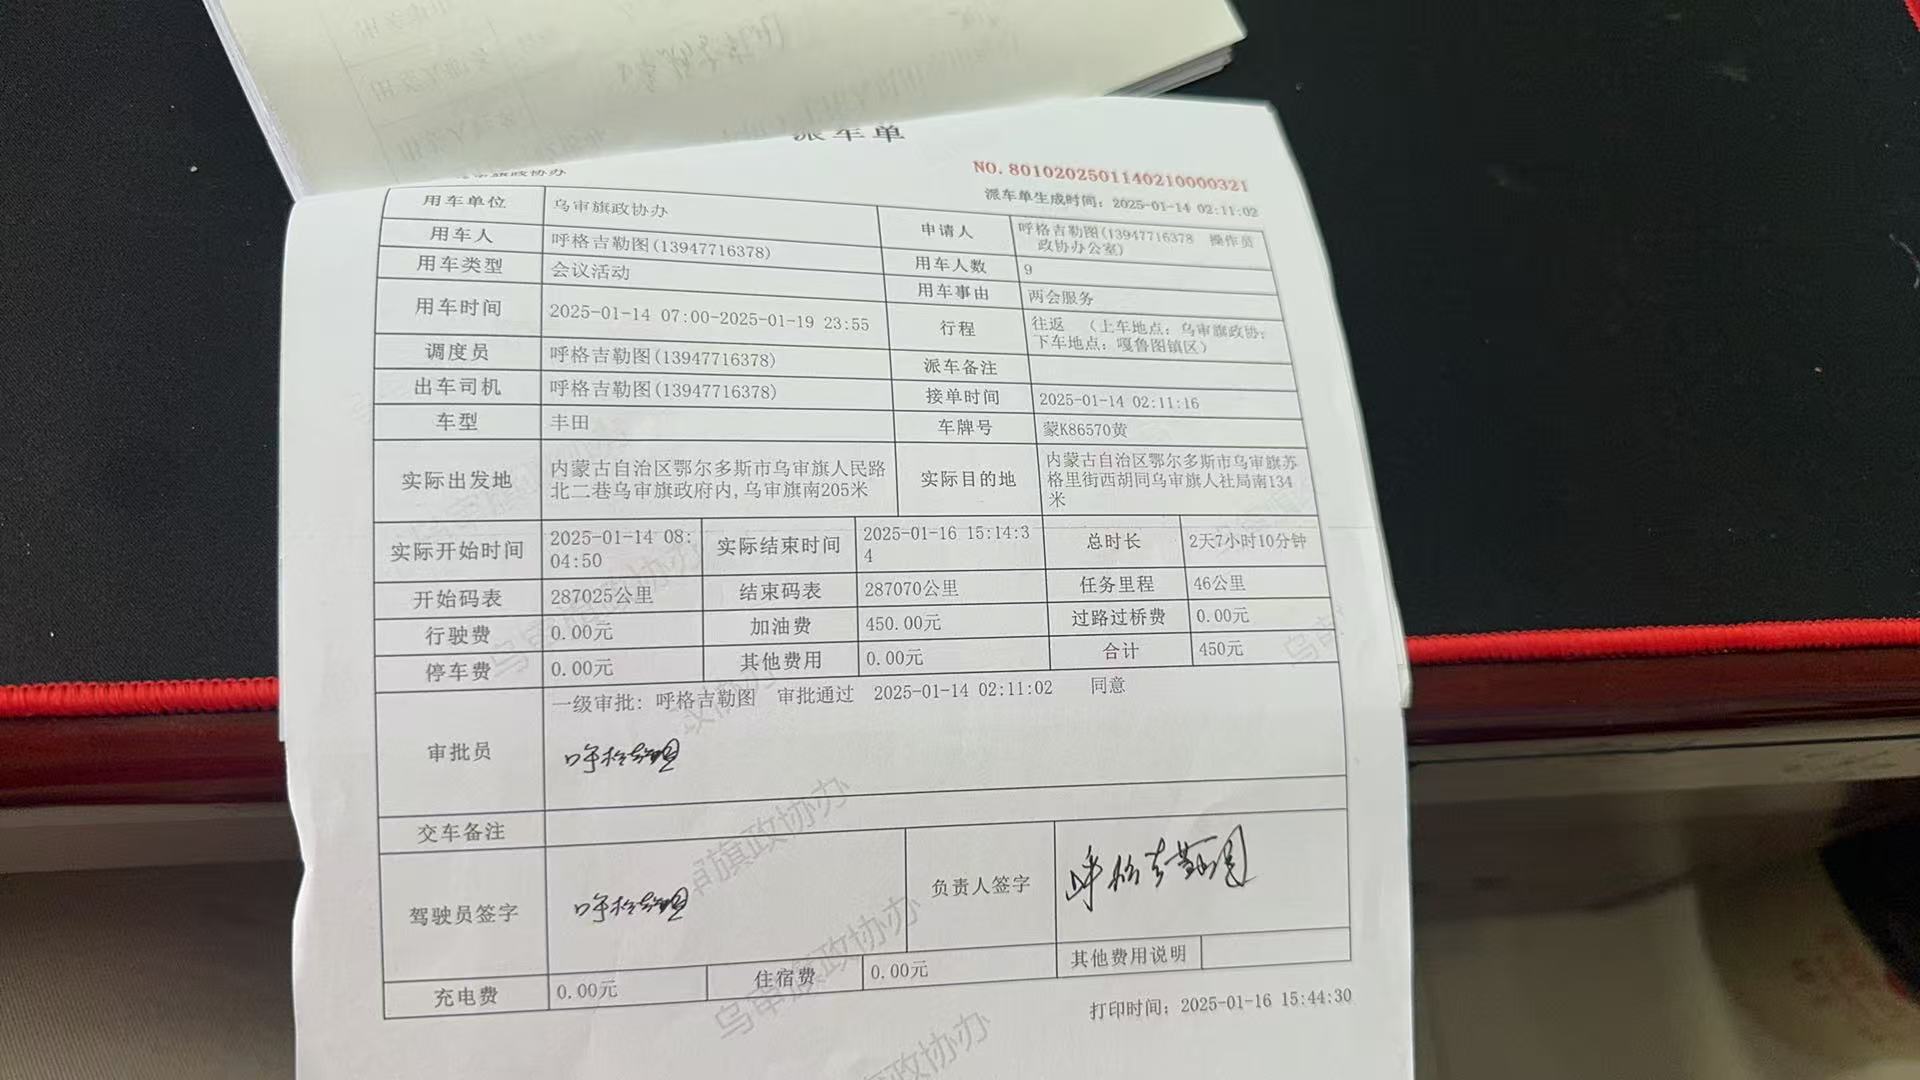 派车单
NO. 8010202501140210000321
旗政协办
派车单生成时间：2025-01-14 02:11:02
用车单位 乌审旗政协办 申请人 呼格吉勒图(13947716378 操作员
政协办公室)
用车人 呼格吉勒图(13947716378)
用车类型 会议活动 用车人数 9
用车事由 两会服务
用车时间 2025-01-14 07:00-2025-01-19 23:55 行程 往返 （上车地点：乌审旗政协；
下车地点：嘎鲁图镇区）
调度员 呼格吉勒图(13947716378) 派车备注
出车司机 呼格吉勒图(13947716378) 接单时间 2025-01-14 02:11:16
车型 丰田 车牌号 蒙K86570黄
实际出发地 内蒙古自治区鄂尔多斯市乌审旗人民路
北二巷乌审旗政府内,乌审旗南205米
实际目的地 内蒙古自治区鄂尔多斯市乌审旗苏
格里街西胡同乌审旗人社局南134
米
实际开始时间 2025-01-14 08:
04:50
实际结束时间 2025-01-16 15:14:3
4
总时长 2天7小时10分钟
开始码表 287025公里 结束码表 287070公里 任务里程 46公里
行驶费 0.00元 加油费 450.00元 过路过桥费 0.00元
停车费 0.00元 其他费用 0.00元 合计 450元
审批员 一级审批：呼格吉勒图 审批通过 2025-01-14 02:11:02 同意
呼格吉勒图
交车备注
驾驶员签字 呼格吉勒图 负责人签字 呼格吉勒图
充电费 0.00元 住宿费 0.00元 其他费用说明
打印时间：2025-01-16 15:44:30
乌审旗政协办